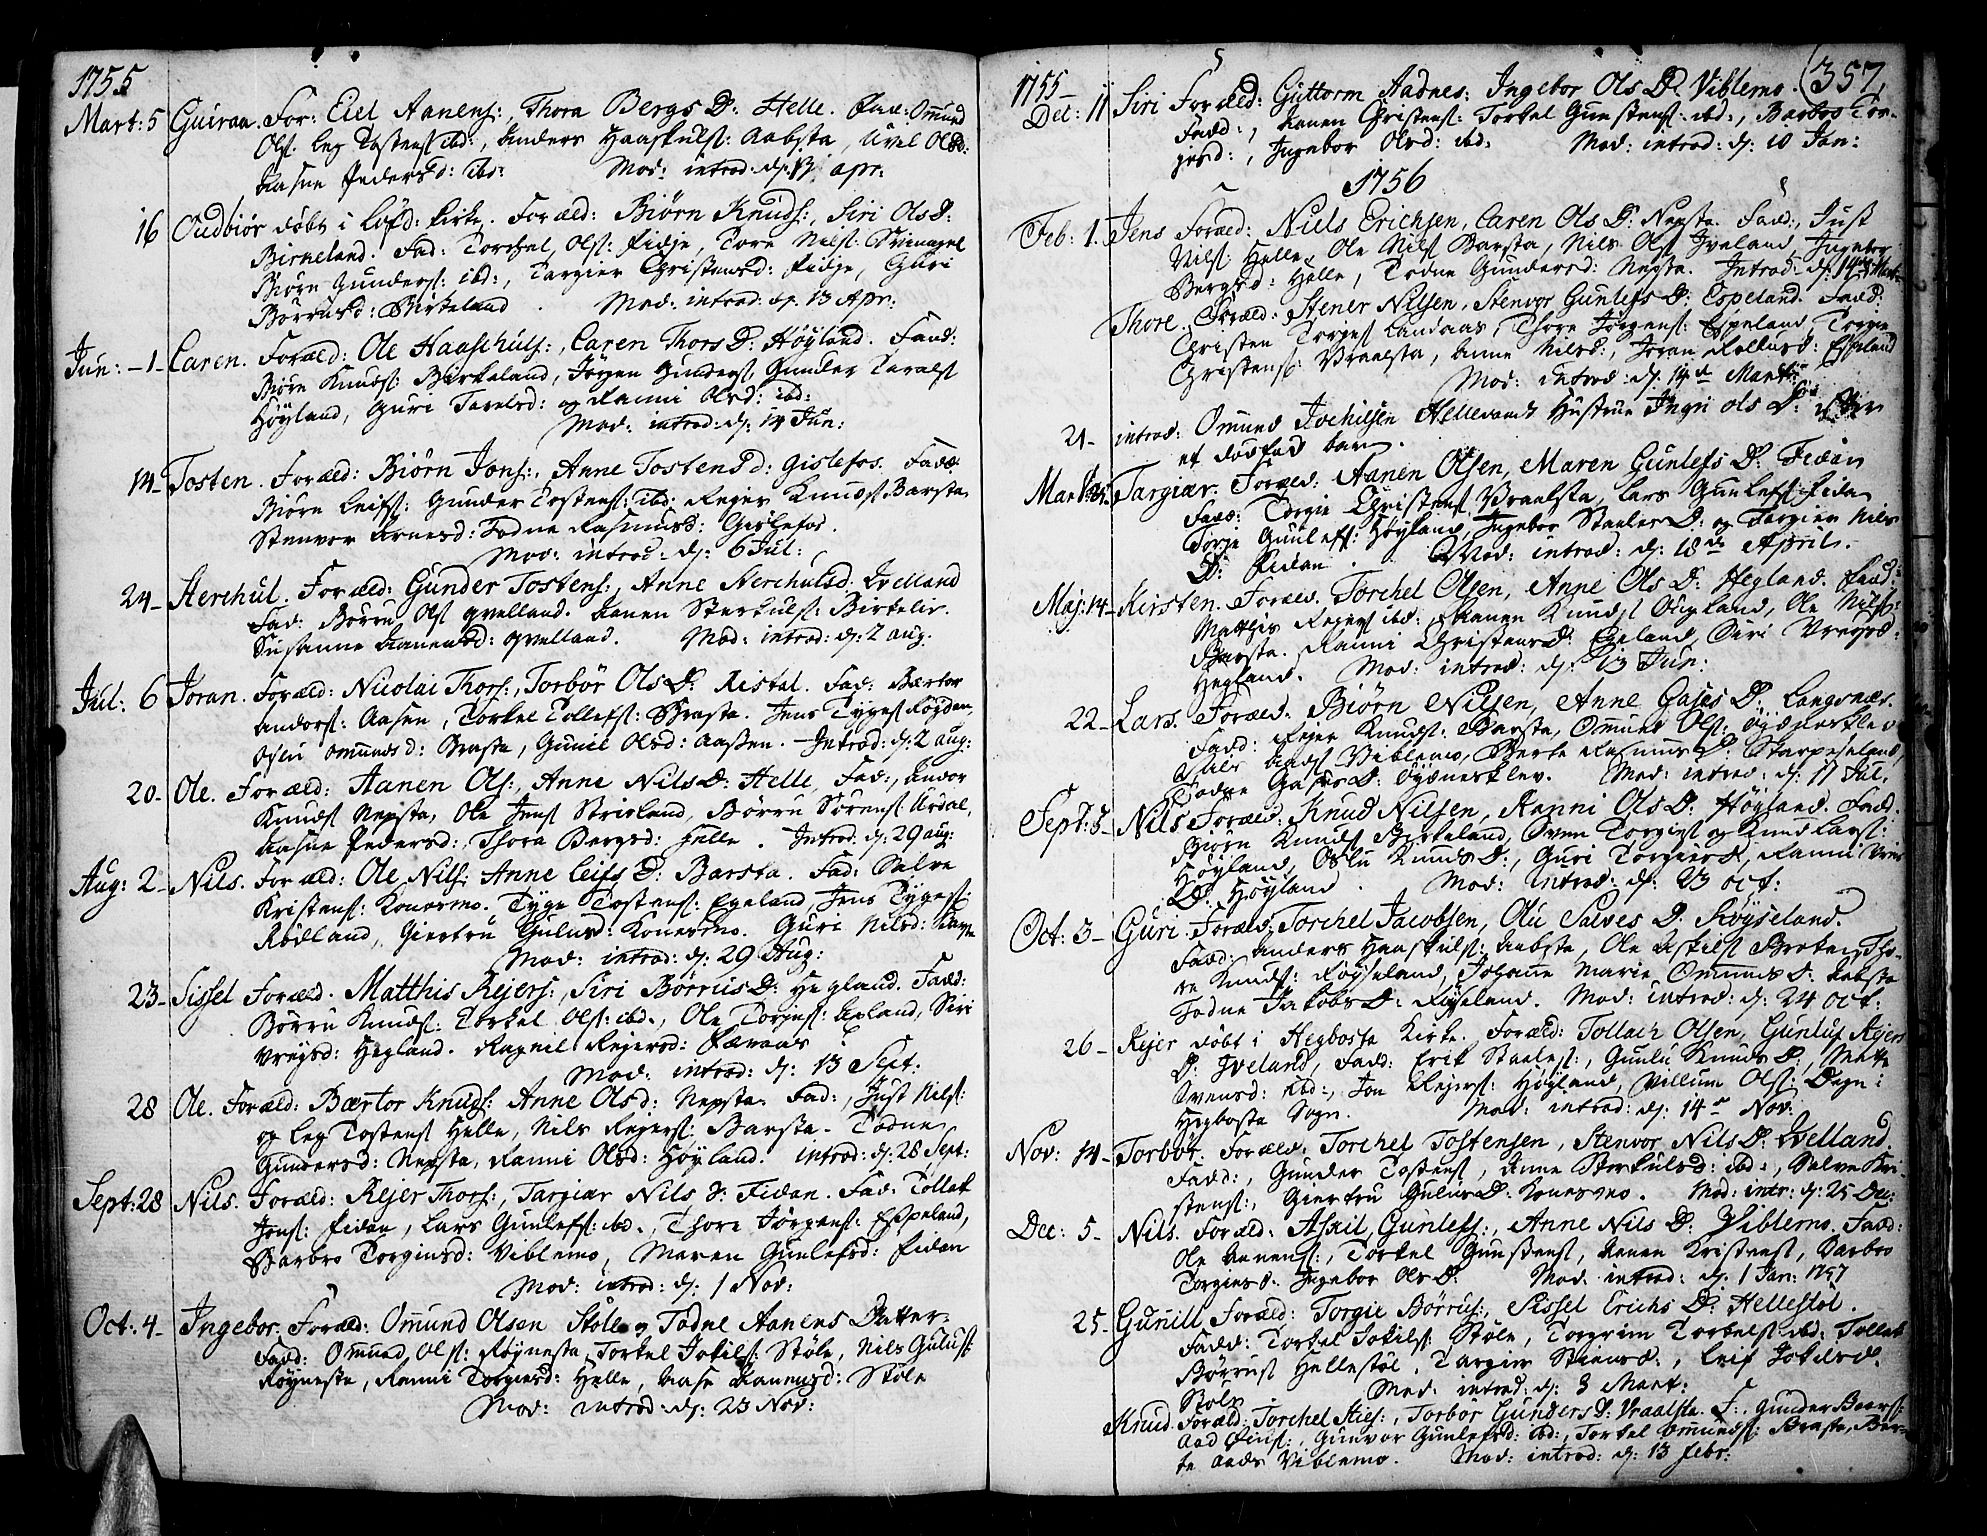 1755
Mart: 5 Guiraa. For: Eiel Aanens:, Thora Bergs D: Helle. Fad: Omund
Ols: Leg Tostens: ibd:, Anders Haaskuls: Aabsta, Uvel Olsd:
Aasne Pedersd: ibd: Mod: introd: d: apr:
16 Oudbiör döbt i Kirke. Foræld: Biörn Knuds:, Siri Ols D:
Birkeland. Fad: Torchel Ols: Fidje, Tore Nils:
Biörn Gunders: ibd:, Targier Christensd: Fidje, Guri
Börrusd: Birkeland. Mod: introd: d: 13 Apr:
Jun: -1- Caren. Foræld: Ole Haaschuls:, Caren Thors D: Höyland. Fadd:
Biörn Knuds: Birkeland, Jörgen Gunders: Gunder Taralds
Höyland, Guri Tarelsd: og Ranni Olsd: ibd:
Mod: introd: d: 14 Jun:
14- Tosten. Foræld: Biörn Jons:, Anne Tostens D: Gislefos. Fadd:
Biörn Leifs: Gunder Tostens: ibd: Rejer Knuds: Barsta
Stenvor Arnesd: Todne Rasmusd: Gislefos.
Mod: introd: d: 6 Jul:
24- Herchul. Foræld: Gunder Tostens:, Anne Herchulsd: Qvelland
Fad: Börru Ols: Qvelland. Aanen Sterkuls: Birkelir.
Susanne Aanensd: Qvelland. Mod: introd: d: 2 aug.
Jul: 6 Joran. Foræld: Nicolai Thors:, Torbör Ols D: Ristal. Fad: Bærtor
Anders: Aasen, Torkel Tollefs: Brasta. Jens Tyges: Rögden,
Oslu Omunds d: Brasta, Gunil Olsd: Aasen. - Introd: d: 2 aug:
20- Ole. Foræld: Aanen Ols:, Anne Nils D: Helle, Fad:, Andor
Knuds: Nepsta, Ole Jens: Strisland, Börru Sörens: Ardal,
Aasne Pedersd:, Thora Bergsd: Helle. Introd: d: 29 aug:
Aug: 2- Nils. Foræld: Ole Nils: Anne Leifs D: Barsta. Fad: Salve
Kristens: Konesmo. Tyge Tostens: Egeland, Jens Tyges:
Rödland, Giertru Gulusd: Konesmo. Guri Nilsd:
Mod: introd: d: 29 Aug:
23- Sissel Foræld: Matthis Rejers:, Siri Börrus D: Hegland. Fadd:
Börru Knuds: Torkel Ols: ibd:, Ole Torjus: Aukland, Siri
Vregsd: Hegland. Ragnil Rejersd: Færaas
Mod: introd: d: 13 Sept:
28 Ole. Foræld: Bærtor Knuds: Anne Olsd: Nepsta. Fad:, Just Nils:
og Leg Tostens: Helle, Nils Rejers: Barsta. Todne
Gundersd: Nepsta, Ranni Olsd: Höyland. introd: d: 28 Sept:
Sept: 28 Nils. Foræld: Rejer Thors:, Targiær Nils D: Fidan. Fad: Tollak
Jons: Fidan, Lars Gunlefs: ibd:, Thore Jörgens: Espeland,
Barbro Torgiusd: Viblemo, Maren Gunlefsd: Fidan
Mod: introd: d: 1 Nov:
Oct: 4- Ingebor. Foræld: Omund Olsen Störle og Todne Aanens Datter.
Fadd: Omund Ols: Röynesta, Torkel Jokils: Stöle, Nils Gulus:
Röynesta, Ranni Torgiersd: Helle, Aase Aanensd: Stöle
Mod: introd: d: 23 Nov:
1755 (357
Det: 11 Siri Foræld: Guttorm Aadnes: Ingebor Ols D: Viblemo.
Fadd:, Aanen Christens: Torkel Gunstens: ibd:, Barbro Tor-
gisd:, Ingebor Olsd: ibd: Mod: introd: d: 10 Jan:
1756
Feb: 1. Jens Foræld: Niels Erichsen, Caren Ols D: Nepsta. Fadd:, Just
Nils: Helle, Ole Nils: Barsta, Nils Ols: Iveland, Ingebor
Bergsd: Helle, Todne Gundersd: Nepsta. Introd: d: 14 Mart:
Thore. Foræld: Stener Nilsen, Stenvor Gunlefs D: Espeland. Fadd:
Christen Torges: Landaas, Thore Jörgens: Espeland, Torgie
Christens: Vraalsta, Anne Nilsd:, Joran Rollusd: Espeland
Mod: introd: d: 14de Martz:
21- introd: Omund Jochilsen Hellevands Hustrue Ingri Ols D: efter
et dödföd barn.
Mart: Targiær. Foræld: Aanen Olsen, Maren Gunlefs D: Fidan
Fadd: Torgie Christens: Vraalsta, Lars Gunlefs: Fidan
Torje Gunlefs: Höyland, Ingebor Staales D: og Targier Nils
D: Fidan. Mod: introd: d: 18de April.
Maj: 14- Kirsten. Foræld: Torchel Olsen, Anne Ols D: Hegland. Fadd:
Matthis Rejers: ibd:, Aanen Knuds: Ougland, Ole Nils:
Barsta. Ranni Christens D: Egeland, Siri Vregsd:
Hegland. Mod: introd: d: 13 Jun:
22- Lars. Foræld: Biörn Nilsen, Anne Gases D: Langenær.
Fadd: Rejer Knuds: Barsta, Omund Ols: Öydneskleb
Nils Aads: Viblemo, Berte Rasmus D: Starpeseland,
Todne Gases D: Öydnesklev. Mod: introd: d: 11 Jul.
Sept: 5 Nils Foræld: Knud Nilsen, Ranni Ols D: Höyland. Fadd:
Biörn Knuds: Birkeland, Sven Torgies: og Knud Lars:
Höyland, Oslu Knuds D:, Guri Torgiers D:, Ranni
D: Höyland. Mod: introd: d: 23 Oct:
Oct: 3- Guri. Foræld: Torchel Jacobsen, Olu Salves D: Röyseland.
Fadd: Anders Haaskuls: Aabsta, Ole Askils: Broten Tho-
re Knuds: Röyseland, Johanne Marie Omunds D: Aabsta
Todne Jakobs D: Röyseland. Mod: introd: d: 24 Oct:
26- Rejer döbt i Hegbosta Kirke. Foræld: Tollach Olsen, Gunlug Rejers
D: Iveland, Fadd: Erik Staales:, Gunlu Knuds D:, Mette
Svensd: ibd:, Jon Rejers: Höyland, Villum Ols: Degn i
Hegbosta Sogn. Mod: introd: d: 14de Nov.
Nov: 14- Torbör. Foræld: Torchel Tostensen, Stenvor Nils D: Qvelland
Fadd:, Gunder Tostens:, Anne Sterkulsd: ibd:, Salve Kri-
stens:, Giertru Gulus D: Konesmo. Mod: intr: d: 25 Dec:
Dec: 5- Nils. Foræld: Askil Gunlefs:, Anne Nils D: Viblemo. Fadd:
Ole Aanens:, Torkel Gunstens:, Aanen Kristens:, Barbro
Torgiesd: Ingebor Ols D: Mod: introd: d: 1 Jan: 1757
25- Gunill Foræld: Torgie Börrus:, Sissel Erichs D: Hellestöl.
Fadd: Torkel Jokils: Stöle, Torgrim Torkels: ibd: Tollak
Börrus: Hellestöl, Targier Stiensd:, Leif Jokelsd:
Stöle Mod: introd: d: 3 Mart:
Knud. Foræld: Torchel Ties:, Torbör Gunders D: Vraalsta. F: Gunder Baars:
Aad Öins:, Gunvor Gunlefsd: ibd:, Torkel Omunds: Brasta, Ber-
te Aads: Viblemo. Mod: introd: d: 13 Febr: